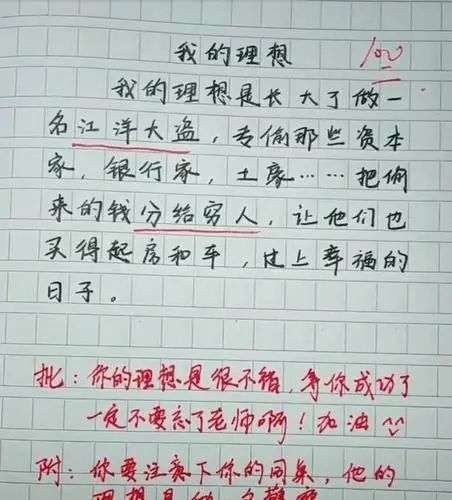 我的理想
100
我的理想是长大了做一
名江洋大盗，专偷那些资本
家，银行家，土豪……把偷
来的钱分给穷人，让他们也
买得起房和车，过上幸福的
日子。
批：你的理想是很不错，等你成功了
一定不要忘了老师啊！加油
附：你要注意下你的同桌，他的
理想是做一名警察